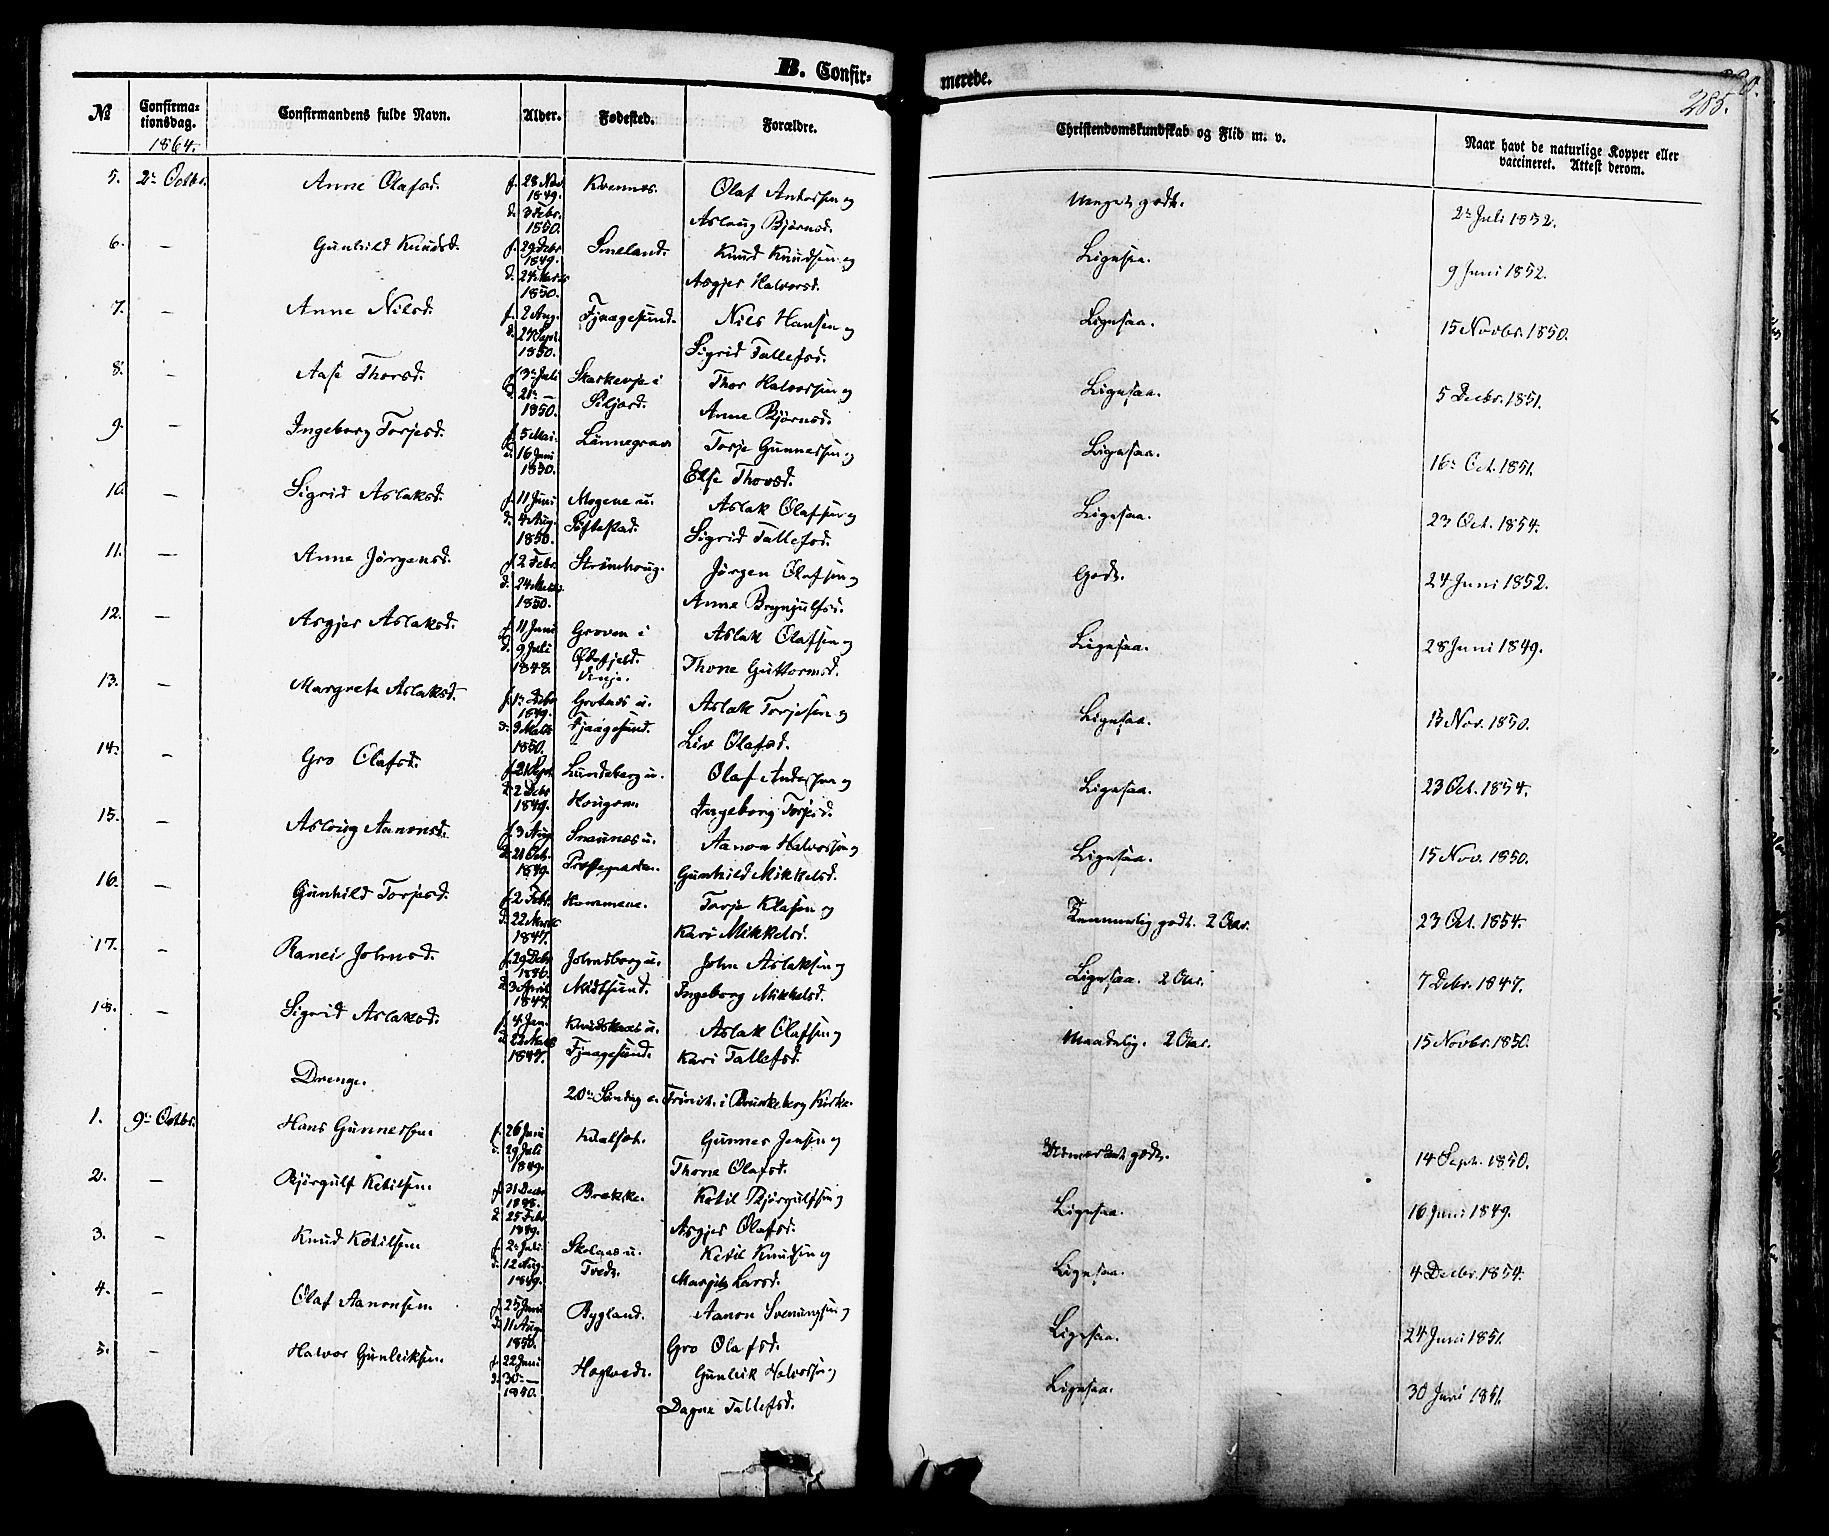 B. Confir-
merede.
285.
№
Confirma-
tionsdag.
1864.
Confirmandens fulde Navn.
Alder.
Fødested.
Forældre.
Christendomskundskab og Flid m. v.
Naar havt de naturlige Kopper eller
vaccineret. Attest derom.
5. 2de Octbr. Anne Olafsd. f. 28 Nov. 1849. d. 3 Febr. 1850. Kvennes. Olaf Anderssen og
Aslaug Bjørnsd. Meget godt. 2de Juli 1852.
6. — Gunhild Knudsd. f. 29 Debr 1849. d. 24 Marts 1850. Smeland. Knud Knudsen og
Asgjer Halvorsd. Ligesaa. 9 Juni 1852.
7. — Anne Nilsd. f. 2 Aug. d. 29 Sept. 1850. Fjaagesund. Nils Hansen og
Sigrid Tallefsd. Ligesaa. 15 Novbr. 1850.
8. — Aase Thorsd. f. 3 Juli d. 21 — 1850. Skarkevje i
Siljord. Thor Halvorsen og
Anne Bjørnsd. Ligesaa. 5 Decbr. 1851.
9. — Ingeborg Torjesd. f. 5 Mai. d. 16 Juni 1850. Lønnegrav Torje Gunnersen og
Else Thorsd. Ligesaa. 16 Oct. 1851.
10. — Sigrid Aslaksd. f. 11 Juni d. 4 Aug. 1850. Mogene u.
Søftestad. Aslak Olafsen og
Sigrid Tallefsd. Ligesaa. 23 Oct. 1854.
11. — Anne Jørgensd. f. 2 Febr. d. 24 Marts 1850. Strømhoug. Jørgen Olafsen og
Anne Brynjulfsd. Godt. 24 Juni 1852.
12. — Asgjer Aslaksd. f. 11 Juni d. 9 Juli 1848. Groven i
Øifjeld.
Vinje. Aslak Olafsen og
Thone Guttormsd. Ligesaa. 28 Juni 1849.
13. — Margrete Aslaksd. f. 1 Debr 1849. d. 3 Marts 1850. Grotnes u.
Fjaagesund. Aslak Torjesen og
Liv Olafsd. Ligesaa. 13 Nov. 1850.
14. — Gro Olafsd. f. 21 Sept. d. 2 Debr 1849. Lundeberg u.
Hougom. Olaf Anderssen og
Ingeborg Torjesd. Ligesaa. 23 Oct. 1854.
15. — Aslaug Aanonsd. f. 3 Aug. d. 21 Oct. 1849. Snaunes u.
Præstegaarden. Aanon Halvorsen og
Gunhild Mikkelsd. Ligesaa. 15 Nov. 1850.
16. — Gunhild Torjesd. f. 2 Febr. d. 22 Marts 1847. Hommene. Torje Klasen og
Kari Mikkelsd. Temmelig godt. 2 Aar. 23 Oct. 1854.
17. — Ranei Johnsd. f. 29 Debr 1846. d. 3 April 1847. Johnsborg u.
Midtsund. John Aslaksen og
Ingeborg Mikkelsd. Ligesaa. 2 Aar. 7 Debr. 1847.
18. — Sigrid Aslaksd. f. 4 Jan. d. 22 Marts 1847. Knudskaas u.
Fjaagesund. Aslak Olafsen og
Kari Tallefsd. Maadelig. 2 Aar. 15 Novbr. 1850.
Drenge.
20de Søndag e. Trinit. i Brunkeberg Kirke.
1. 9de Octbr. Hans Gunnersen. f. 26 Juni d. 29 Juli 1849. Kvalsot. Gunner Jensen og
Thone Olafsd. Udmærket godt. 14 Sept. 1850.
2. — Bjørgulf Ketilsen. f. 31 Decbr 1848. d. 25 Febr 1849. Brekke. Ketil Bjørgulfsen og
Asgjer Olafsd. Ligesaa. 16 Juni 1849.
3. — Knud Ketilsen f. 2 Juli d. 12 Aug. 1849. Skolaas u.
Tvedt. Ketil Knudsen og
Margit Larsd. Ligesaa. 4 Decbr. 1854.
4. — Olaf Aanonsen. f. 25 Juni d. 11 Aug. 1850. Bygland. Aanon Sveinungsen og
Gro Olafsd. Ligesaa. 24 Juni 1851.
5. — Halvor Gunleiksen. f. 22 Juni d. 30 — 1850. Hogtvedt. Gunleik Halvorsen og
Dagne Tallefsd. Ligesaa. 30 Juni 1851.